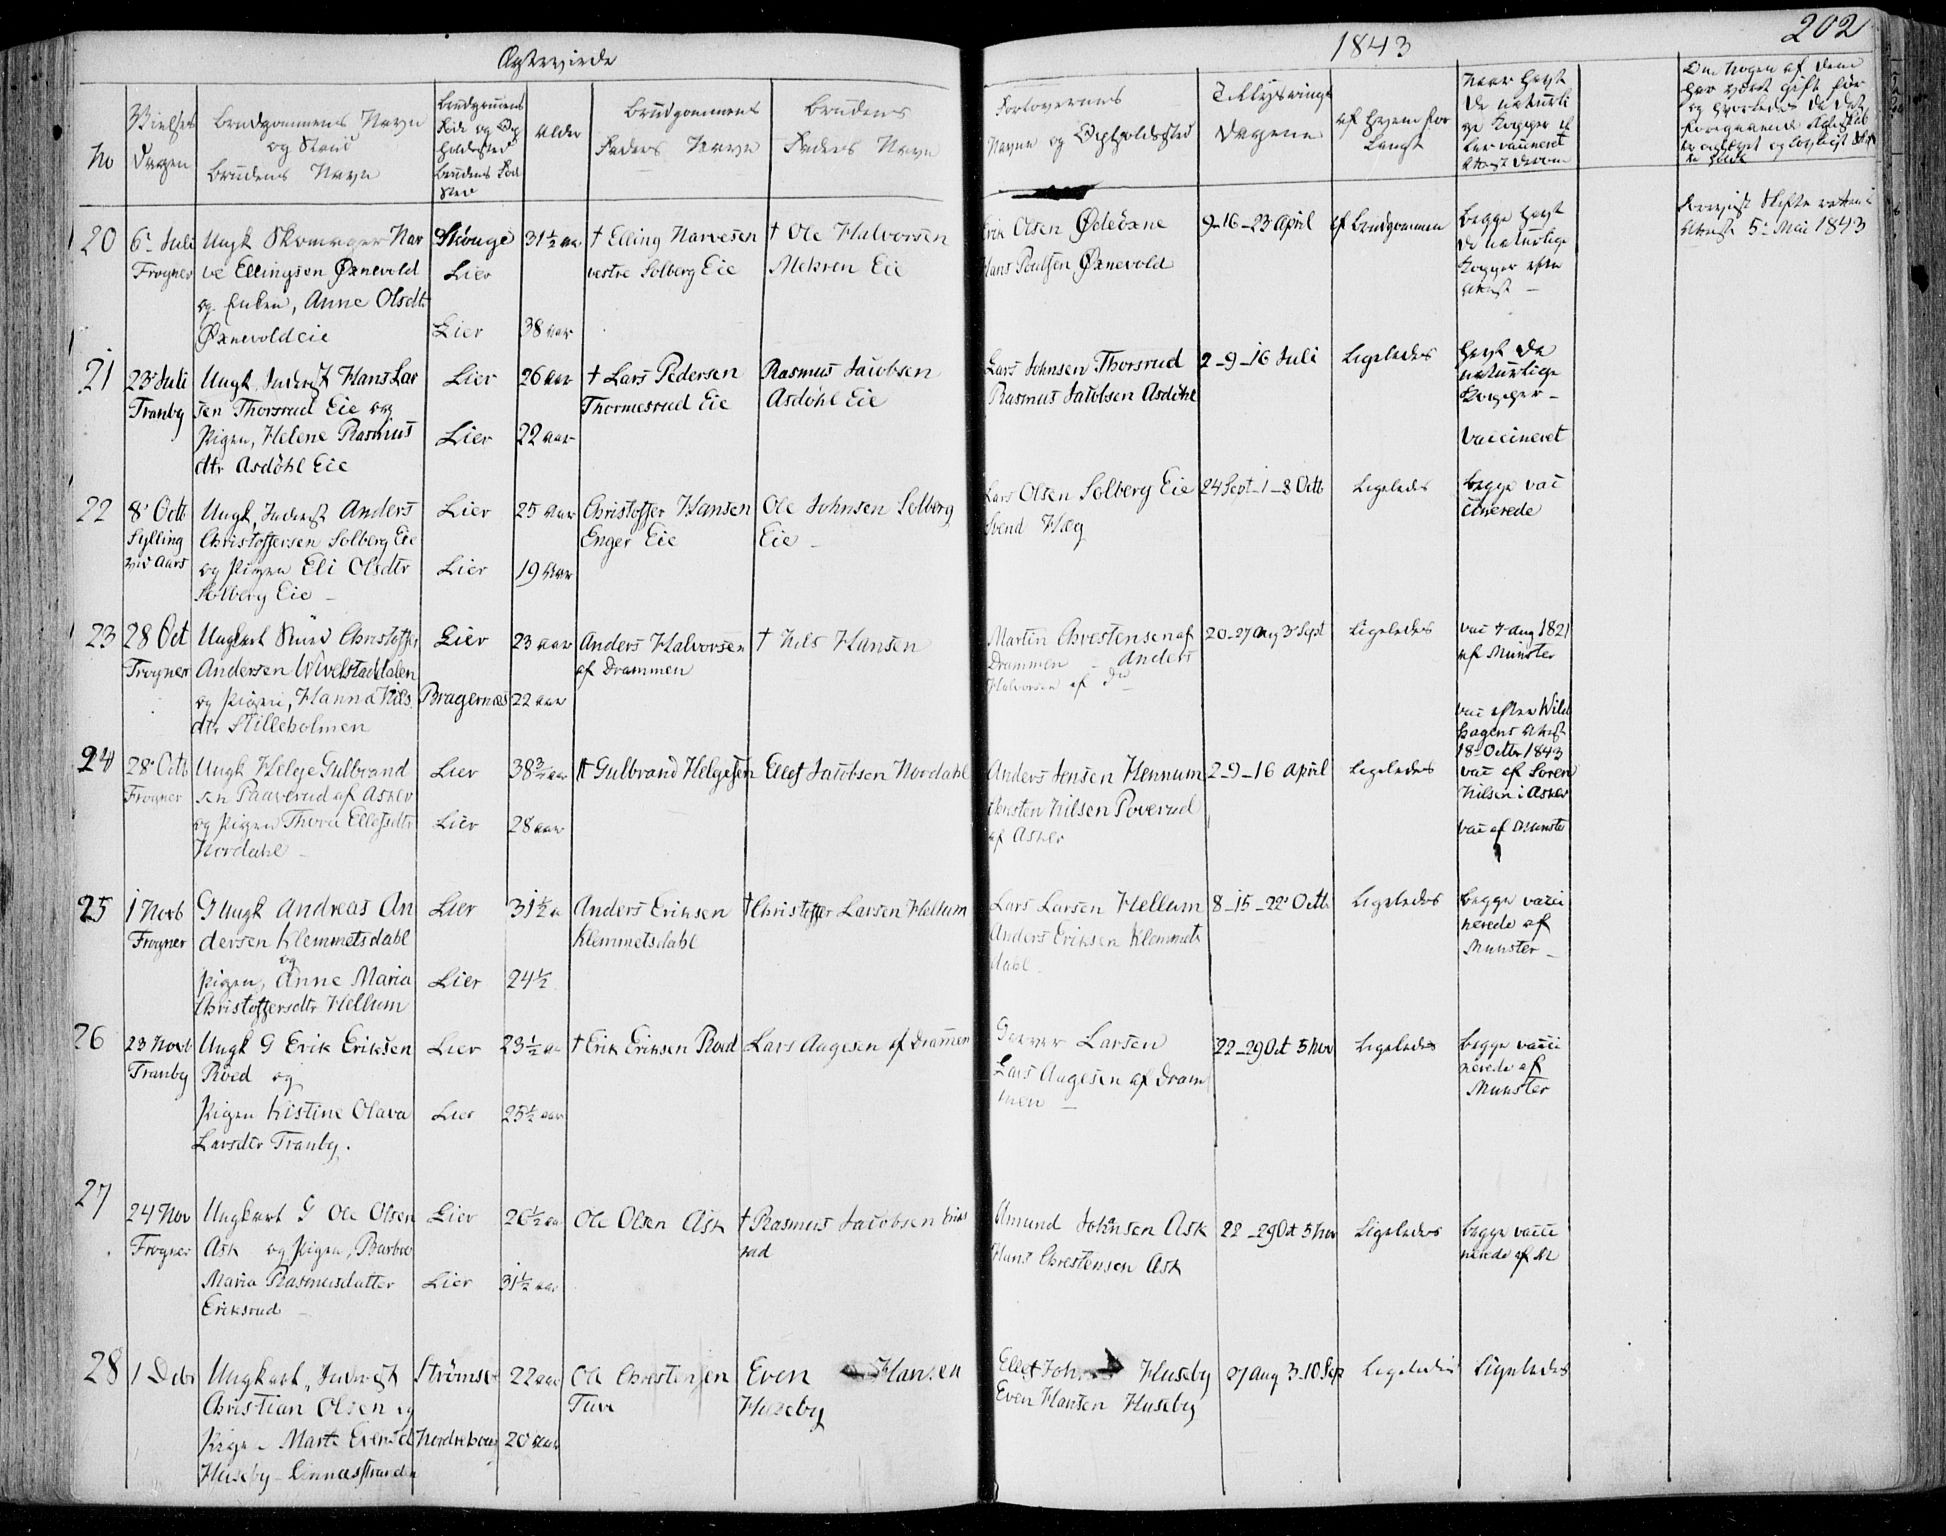 Ægteviede
1843
202
No
Vielses Dagen
Brudgommens Navn
og Stand
Brudens Navn
Alder
Brudgommens
Faders Navn
Brudens
Faders Navn
Forlovernes
Navne og Opholdssted
Tillysnings
Dagene
af hvem for
langt
20
6 Juli
Frogner
Ungk Skomager Nar
ve Ellingsen Øxnevold
og Enken, Anne Olsdtr
Øxnevoldeie
Skouge
Lier
Lier
31½ aar
38 aar
† Elling Narvesen
vestre Solberg Eie
† Ole Halvorsen
Mehren Eie
Erik Olsen
Hans Poulsen Øxnevold
9-16-23 April
af Brudgommen
Begge havt
de naturlige
Kopper efter
Attest
Skifte
Attest 5 Mai 1843
21
23 Juli
Tranby
Ungk, Inderst Hans Lar
sen Thorsrud Eie og
Pigen, Helene Rasmus
dtr Asdøhl Eie
Lier
Lier
26 aar
22 aar
† Lars Pedersen
Thormesrud Eie
Rasmus Jacobsen
Asdøhl Eie
Lars Johnsen Thorsrud
Rasmus Jacobsen Asdøhl
2-9-16 Juli
Ligeledes
havt de
naturlige
Kopper
Vaccineret
22
8 Octb
Sylling
Ungk, Inderst Anders
Christoffersen Solberg Eie
og Pigen Eli Olsdtr
Solberg Eie
Lier
Lier
25 aar
19 aar
Christoffer Hansen
Enger Eie
Ole Johnsen Solberg
Eie
Lars Olsen Solberg Eie
Svend Hæg
24 Sept-1-8 Octb
Ligeledes
Begge vac
cinerede
23
28 Oct
Frogner
Ungkarl Christoffer
Andersen Wivelstaddalen
og Pigen, Hanna Nils
dtr Stilleholmen
Lier
Bragernæs
23 aar
22 aar
Anders Halvorsen
af Drammen
† Nils Hansen
Marten Chrestensen af
Drammen - Anders
Halvorsen af Do
20-27 Aug 3 Sept
Ligeledes
vac 7 Aug 1821
af Munster
vac efter Wild
hagens Attest
18 Octbr 1843
24
28 Octb
Frogner
Ungk Helge Gulbrand
sen Paaverud af Asker
og Pigen Thora Ellefsdtr
Nordahl
Lier
Lier
38¾ aar
28 aar
† Gulbrand Helgesen
Ellef Jacobsen Nordahl
Anders Jensen Hennum
Chresten Nilsen Poverud
af Asker
2-9-16 April
Ligeledes
vac af Soren
Nilsen i Asker
vac af Munster
25
1 Novb
Frogner
G Ungk Andreas An
dersen Klemmetsdahl
og
Pigen, Anne Maria
Christoffersdtr Hellum
Lier
Lier
31½ a
24½
Anders Eriksen
Klemmetsdahl
† Christoffer Larsen Hellum
Lars Larsen Hellum
Anders Eriksen Klemmets
dahl
8-15-22 Octb
Ligeledes
Begge vacci
nerede af
Munster
26
23 Novb
Tranby
Ungk G Erik Eriksen
Roed og
Pigen Kistine Olava
Larsdtr Tranby.
Lier
Lier
23½ aar
25½ aar
† Erik Eriksen Roed
Lars Aagesen af Drammen
Larsen
Lars Aagesen af Dram
men
22-29 Oct 5 Nov
Ligeledes
Begge vacci
nerede af
Munster
27
24 Nov
Frogner
Ungkarl G Ole Olsen
Ask og Pigen, Barbro
Maria Rasmusdatter
Eriksrud
Lier
Lier
26½ aar
31½ aar
Ole Olsen Ask
† Rasmus Jacobsen Eriks
rud
Amund Johnsen Ask
Hans Chrestensen Ask
22-29 Oct 5 Nov
Ligeledes
Begge vacci
nerede af M
28
1 Debr
Ungkarl, Inderst
Christian Olsen og
Pigen Marte Evensd
Huseby - Linnesstranden
Strømsøe
22 aar
20 aar
Ole Christensen
Tuve
Even Hansen
Huseby
Ellef Huseby
Even Hansen Huseby
27 Aug 3-10 Sep
Ligeledes
Ligeledes